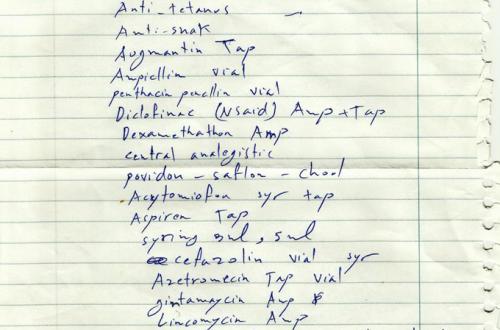 Anti-tetanus
Anti-snak
Augmantin Tap
Ampicllin vial
penthacin pencllin vial
Diclofinac (NSaid) Amp + Tap
Dexamethathon Amp
central analegistic
povidon - saflon - chool
Acytomiofen syr tap
Aspiren Tap
syring 3ml, 5ml
cefazolin vial syr
Azetromecin Tap vial
gintamaycin Amp
Lincomycin Amp